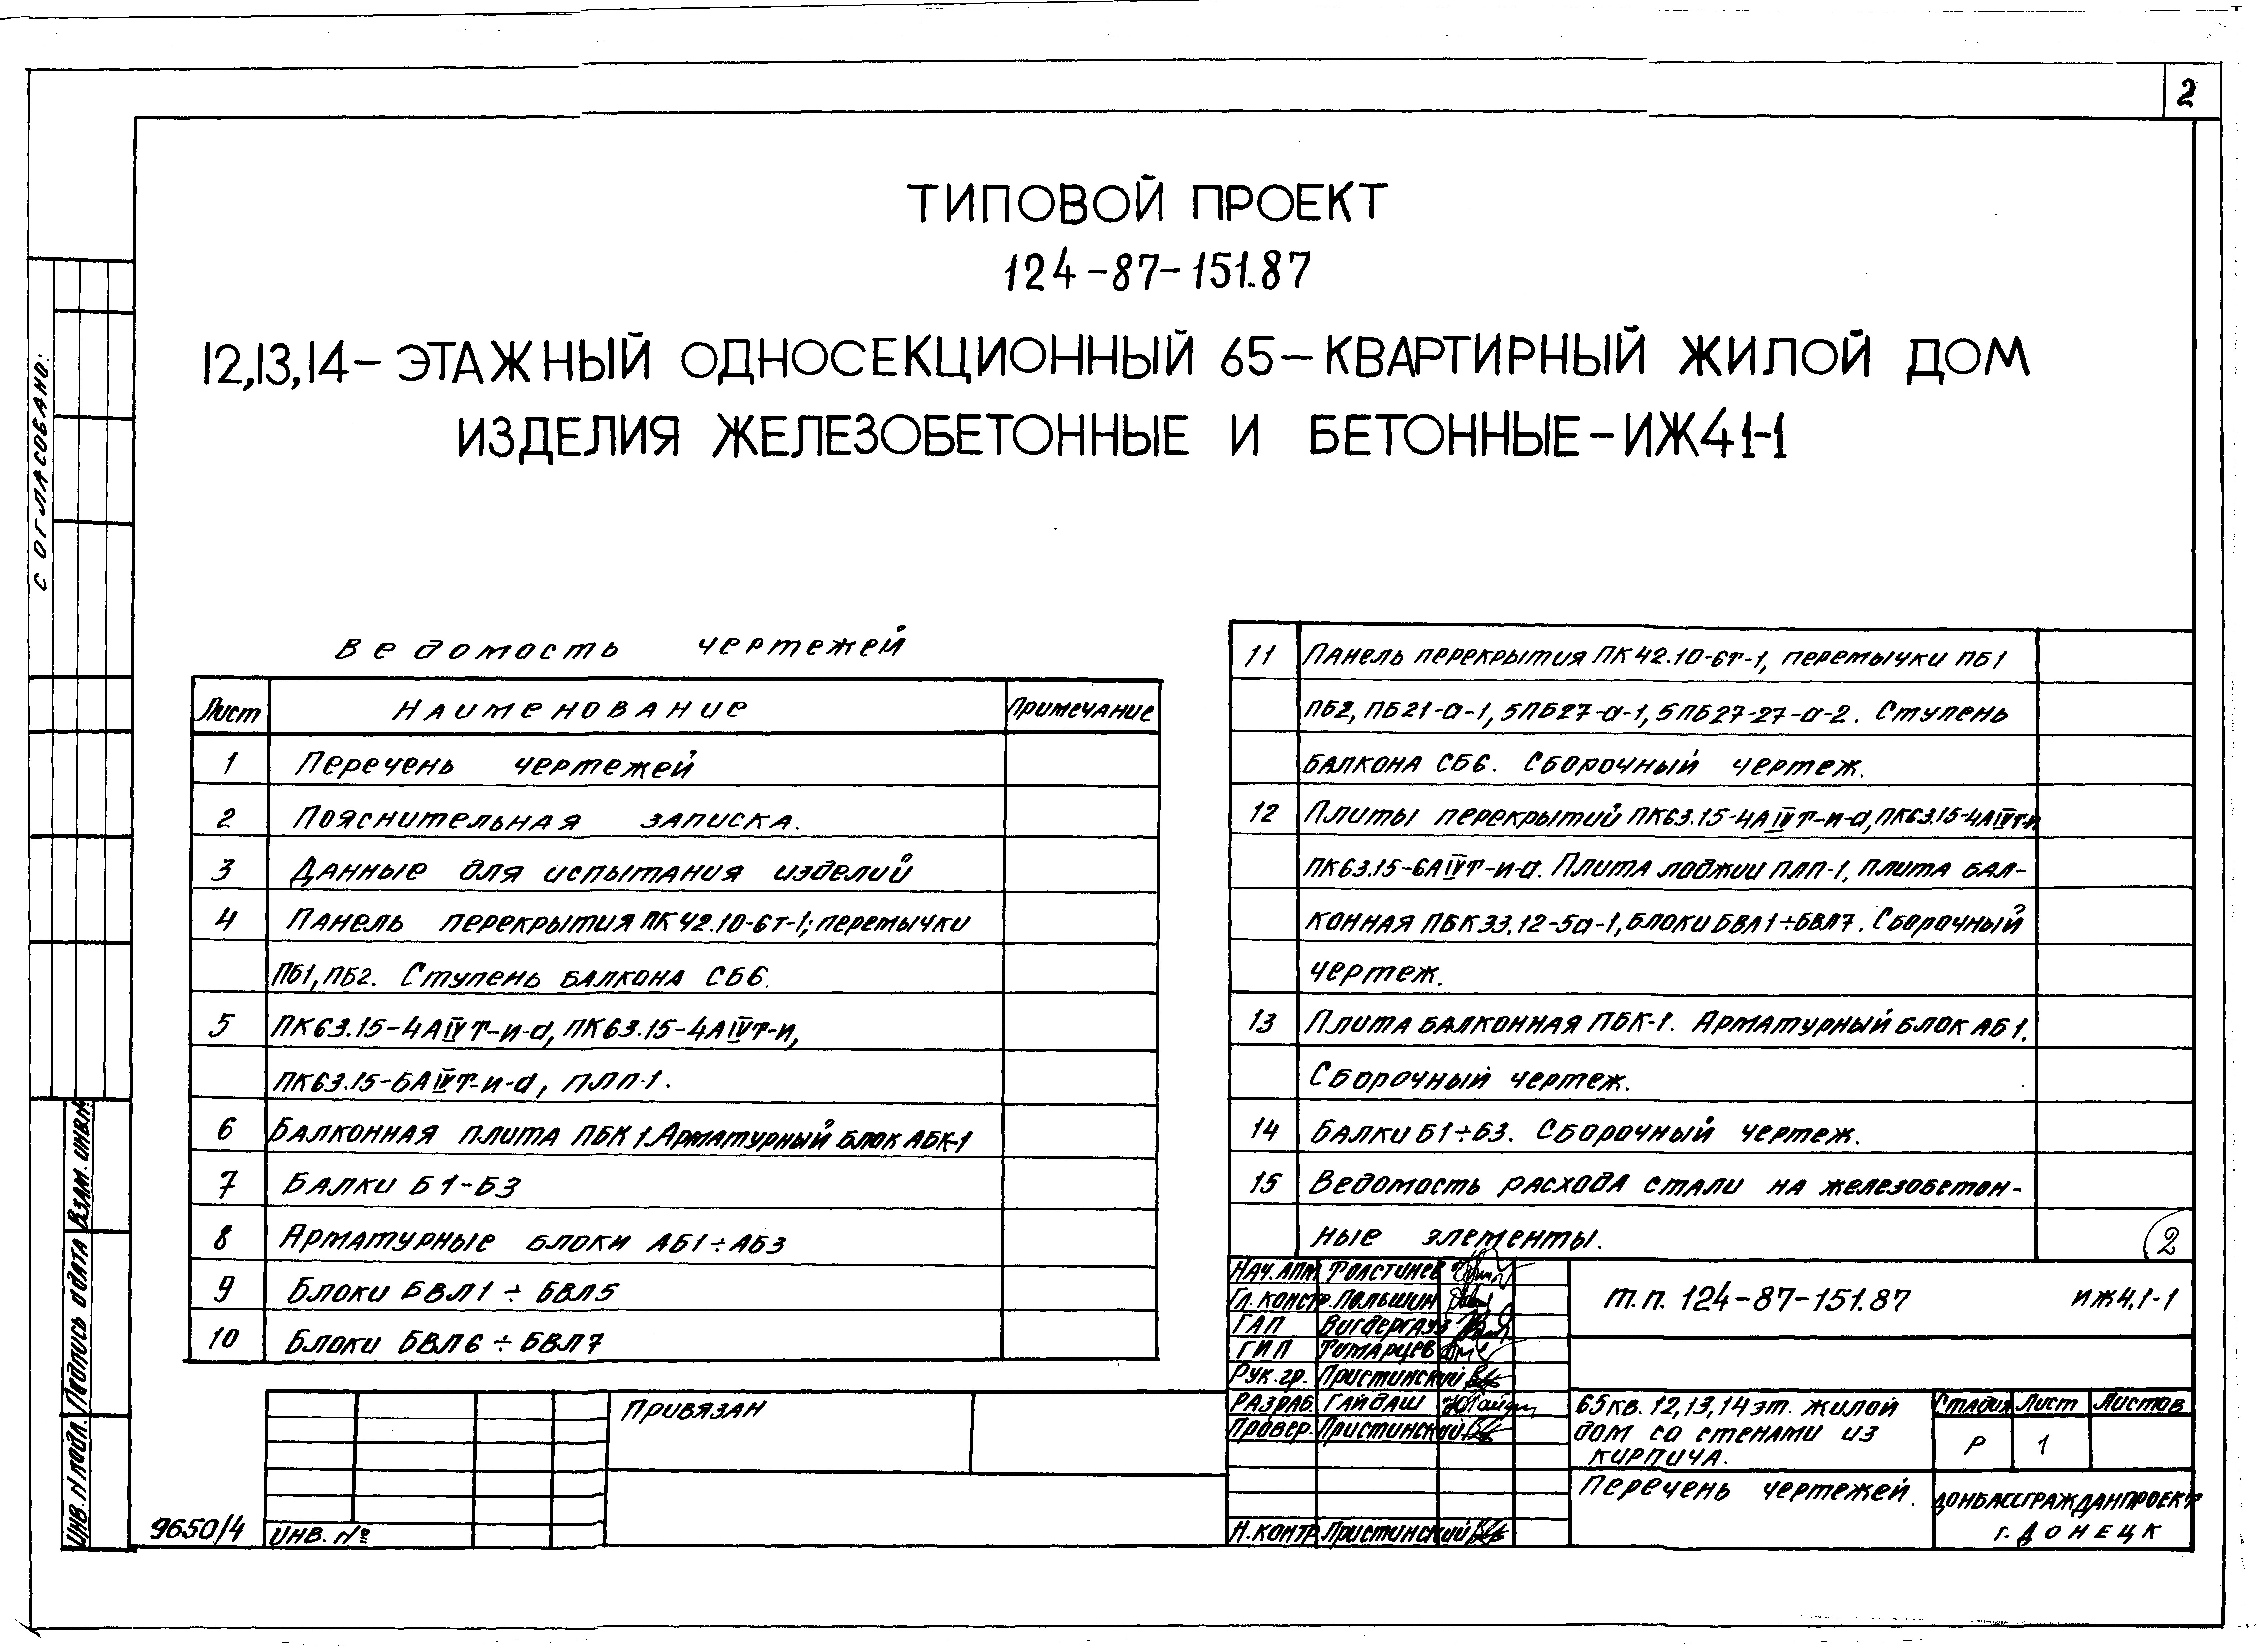 2
ТИПОВОЙ ПРОЕКТ
124-87-151.87
12,13,14-ЭТАЖНЫЙ ОДНОСЕКЦИОННЫЙ 65-КВАРТИРНЫЙ ЖИЛОЙ ДОМ
ИЗДЕЛИЯ ЖЕЛЕЗОБЕТОННЫЕ И БЕТОННЫЕ-ИЖ4.1-1
СОГЛАСОВАНО:
Ведомость чертежей
Лист Наименование Примечание
1 Перечень чертежей
2 Пояснительная записка.
3 Данные для испытания изделий
4 Панель перекрытия ПК42.10-6т-1; перемычки
ПБ1, ПБ2. Ступень балкона СБ6.
5 ПК63.15-4АIVТ-и-а, ПК63.15-4АIVт-и,
ПК63.15-6АIVТ-и-а, ПЛП-1.
6 Балконная плита ПБК1. Арматурный блок АБК-1
7 Балки Б1-Б3
8 Арматурные блоки АБ1÷АБ3
9 Блоки БВЛ1÷БВЛ5
10 Блоки БВЛ6÷БВЛ7
11 Панель перекрытия ПК42.10-6т-1, перемычки ПБ1
ПБ2, ПБ21-а-1, 5ПБ27-а-1, 5ПБ27-27-а-2. Ступень
балкона СБ6. Сборочный чертеж.
12 Плиты перекрытий ПК63.15-4АIVТ-и-а, ПК63.15-4АIVт-и
ПК63.15-6АIVТ-и-а. Плита лоджии ПЛП-1, плита бал-
конная ПБК33.12-5а-1, блоки БВЛ1÷БВЛ7. Сборочный
чертеж.
13 Плита балконная ПБК-1. Арматурный блок АБ1.
Сборочный чертеж.
14 Балки Б1÷Б3. Сборочный чертеж.
15 Ведомость расхода стали на железобетон-
ные элементы.
2
Нач. АПМ Толстинев
Гл. констр. Польшин
ГАП Вигдергауз
ГИП Тимарцев
Рук. гр. Пристинский
Разраб. Гайдаш
Провер. Пристинский
Н. контр Пристинский
т.п. 124-87-151.87 ИЖ4.1-1
65кв. 12,13,14эт. жилой
дом со стенами из
кирпича.
Стадия Лист Листов
Р 1
Перечень чертежей.
ДОНБАССГРАЖДАНПРОЕКТ
г. ДОНЕЦК
Привязан
Инв. №
9650/4
Инв. N подл. Подпись и дата Взам. инв. №